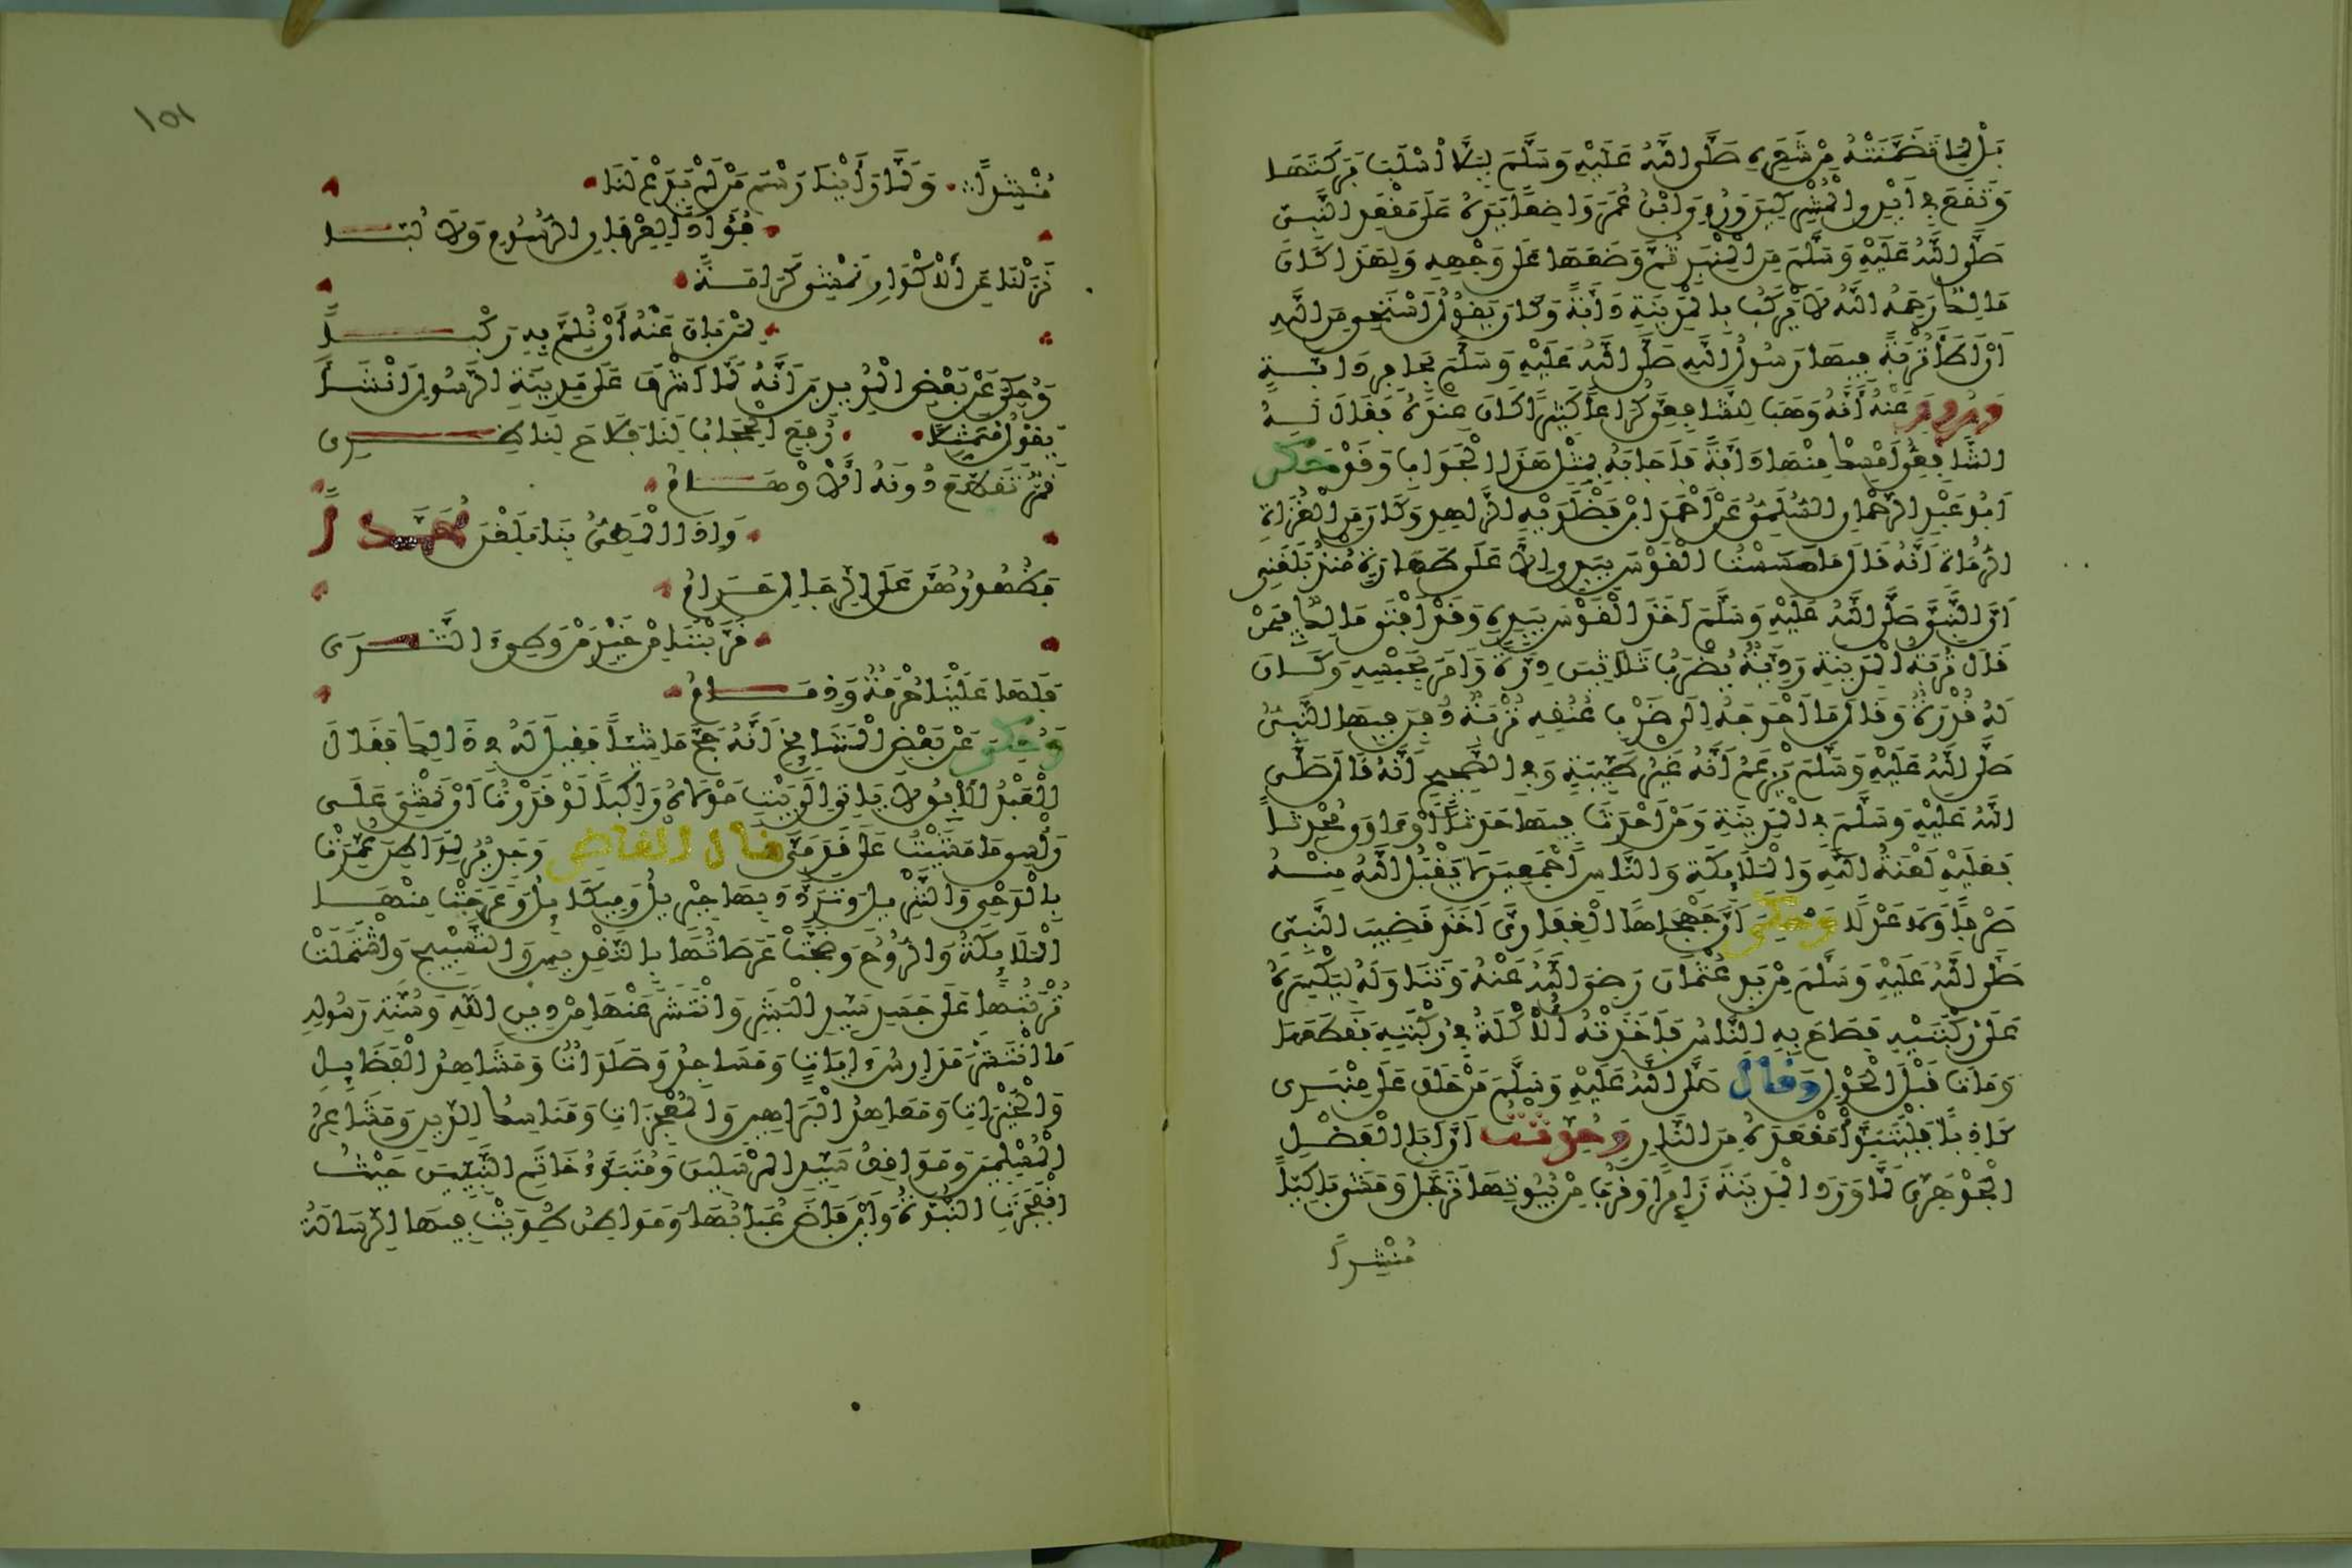 بَلْ لِمَا تَضَمَّنَتْهُ مِنْ شَعَرِهِ صَلَّى اللَّهُ عَلَيْهِ وَسَلَّمَ لِيَلَّا اُسْلَبَ بَرَكَتَهَا
وَتَقَعَ فِي أَيْدِي الْمُشْرِكِينَ وَرُءِيَ ابْنُ عُمَرَ وَاضِعًا يَدَهُ عَلَى مَقْعَدِ النَّبِيِّ
صَلَّى اللَّهُ عَلَيْهِ وَسَلَّمَ مِنَ الْمِنْبَرِ ثُمَّ وَضَعَهَا عَلَى وَجْهِهِ وَلِهَذَا كَانَ
مَالِكٌ رَحِمَهُ اللَّهُ لَا يَرْكَبُ بِالْمَدِينَةِ دَابَّةً وَكَانَ يَقُولُ أَسْتَحْيِي مِنَ اللَّهِ
أَنْ أَطَأَ تُرْبَةً فِيهَا رَسُولُ اللَّهِ صَلَّى اللَّهُ عَلَيْهِ وَسَلَّمَ بِحَافِرِ دَابَّةٍ
وَرُوِيَ عَنْهُ أَنَّهُ وَهَبَ لِلشَّافِعِيِّ كُرَاعًا كَثِيرًا كَانَ عِنْدَهُ فَقَالَ لَهُ
الشَّافِعِيُّ أَمْسِكْ مِنْهَا دَابَّةً فَأَجَابَهُ بِمِثْلِ هَذَا الْجَوَابِ وَقَدْ حَكَى
أَبُو عَبْدِ الرَّحْمَانِ السُّلَمِيُّ عَنْ أَحْمَدَ ابْنِ فَضْلَوَيْهِ الزَّاهِدِ وَكَانَ مِنَ الْغُزَاةِ
الرُّمَاةِ أَنَّهُ قَالَ مَا مَسَسْتُ الْقَوْسَ بِيَدِي إِلَّا عَلَى طَهَارَةٍ مُنْذُ بَلَغَنِي
أَنَّ النَّبِيَّ صَلَّى اللَّهُ عَلَيْهِ وَسَلَّمَ أَخَذَ الْقَوْسَ بِيَدِهِ وَقَدْ أَفْتَى مَالِكٌ فِيمَنْ
قَالَ تُرْبَةُ الْمَدِينَةِ رَدِيَّةٌ يُضْرَبُ ثَلَاثِينَ دِرَّةً وَأَمَرَ بِحَبْسِهِ وَكَانَ
لَهُ قُدْرَةٌ وَقَالَ مَا أَحْوَجَهُ إِلَى ضَرْبِ عُنُقِهِ تُرْبَةٌ دُفِنَ فِيهَا النَّبِيُّ
صَلَّى اللَّهُ عَلَيْهِ وَسَلَّمَ يَزْعُمُ أَنَّهُ غَيْرُ طَيِّبَةٍ وَفِي الصَّحِيحِ أَنَّهُ قَالَ صَلَّى
اللَّهُ عَلَيْهِ وَسَلَّمَ فِي الْمَدِينَةِ وَمَنْ أَحْدَثَ فِيهَا حَدَثًا أَوْ ءَاوَى مُحْدِثًا
فَعَلَيْهِ لَعْنَةُ اللَّهِ وَالْمَلَائِكَةِ وَالنَّاسِ أَجْمَعِينَ لَا يَقْبَلُ اللَّهُ مِنْهُ
صَرْفًا وَلَا عَدْلًا وَحُكِيَ أَنَّ جَهْجَاهًا الْغِفَارِيَّ أَخَذَ قَضِيبَ النَّبِيِّ
صَلَّى اللَّهُ عَلَيْهِ وَسَلَّمَ مِنْ يَدِ عُثْمَانَ رَضِيَ اللَّهُ عَنْهُ وَتَنَاوَلَهُ لِيَكْسِرَهُ
عَلَى رُكْبَتَيْهِ فَصَاحَ بِهِ النَّاسُ فَأَخَذَتْهُ الْأَكْلَةُ فِي رُكْبَتِهِ فَقَطَعَهَا
وَمَاتَ قَبْلَ الْحَوْلِ وَقَالَ صَلَّى اللَّهُ عَلَيْهِ وَسَلَّمَ مَنْ حَلَفَ عَلَى مِنْبَرِي
كَاذِبًا فَلْيَتَبَوَّأْ مَقْعَدَهُ مِنَ النَّارِ وَحُدِّثْتُ أَنَّ أَبَا الْفَضْلِ
الْجَوْهَرِيَّ لَمَّا وَرَدَ الْمَدِينَةَ زَائِرًا وَقَرُبَ مِنْ بُيُوتِهَا تَرَجَّلَ وَمَشَى بَاكِيًا
مُنْشِدًا
١٥١
مُنْشِدًا وَلَمَّا رَأَيْنَا رَسْمَ مَنْ لَمْ يَدَعْ لَنَا
فُؤَادًا لِعِرْفَانِ الرُّسُومِ وَلَا لُبَّا
نَزَلْنَا عَنِ الْأَكْوَارِ نَمْشِي كَرَامَةً
لِمَنْ بَانَ عَنْهُ أَنْ نُلِمَّ بِهِ رَكْبًا
وَحُكِيَ عَنْ بَعْضِ الْمُرِيدِينَ أَنَّهُ لَمَّا أَشْرَفَ عَلَى مَدِينَةِ الرَّسُولِ أَنْشَأَ
يَقُولُ مُتَمَثِّلًا رُفِعَ الْحِجَابُ لَنَا فَلَاحَ لِنَاظِرِي
قَمَرٌ تَقَطَّعُ دُونَهُ الْأَوْهَامُ
وَإِذَا الْمَطِيُّ بِنَا بَلَغْنَ مُحَمَّدًا
فَظُهُورُهُنَّ عَلَى الرِّجَالِ حَرَامُ
قَرَّبْنَنَا مِنْ خَيْرِ مَنْ وَطِئَ الثَّرَى
فَلَهَا عَلَيْنَا حُرْمَةٌ وَذِمَامُ
وَحُكِيَ عَنْ بَعْضِ الْمَشَايِخِ أَنَّهُ حَجَّ مَاشِيًا فَقِيلَ لَهُ فِي ذَالِكَ فَقَالَ
الْعَبْدُ الْآبِقُ لَا يَاتِي إِلَى بَيْتِ مَوْلَاهُ رَاكِبًا لَوْ قَدَرْتُ أَنْ نَمْشِيَ عَلَى
رَأْسِي مَا مَشَيْتُ عَلَى قَدَمَيَّ قَالَ الْقَاضِي وَجَدِيرٌ لِمَوَاطِنَ عُمِرَتْ
بِالْوَحْيِ وَالتَّنْزِيلِ وَتَرَدَّدَ بِهَا جِبْرِيلُ وَمِيكَائِيلُ وَعَرَجَتْ مِنْهَا
الْمَلَائِكَةُ وَالرُّوحُ وَضَجَّتْ عَرَصَاتُهَا بِالتَّقْدِيسِ وَالتَّسْبِيحِ وَاشْتَمَلَتْ
تُرْبَتُهَا عَلَى جَسَدِ سَيِّدِ الْبَشَرِ وَانْتَشَرَ عَنْهَا مِنْ دِينِ اللَّهِ وَسُنَّةِ رَسُولِهِ
مَا انْتَشَرَ مَدَارِسُ ءَايَاتٍ وَمَسَاجِدُ وَصَلَوَاتٌ وَمَشَاهِدُ الْفَضَائِلِ
وَالْخَيْرَاتِ وَمَعَاهِدُ الْبَرَاهِينِ وَالْمُعْجِزَاتِ وَمَنَاسِكُ الدِّينِ وَمَشَاعِرُ
الْمُسْلِمِينَ وَمَوَاقِفُ سَيِّدِ الْمُرْسَلِينَ وَمُتَبَوَّءُ خَاتَمِ النَّبِيِّينَ حَيْثُ
انْفَجَرَتِ النُّبُوَّةُ وَأَيْنَ فَاضَ عُبَابُهَا وَمَوَاطِنُ طُوِيَتْ فِيهَا الرِّسَالَةُ